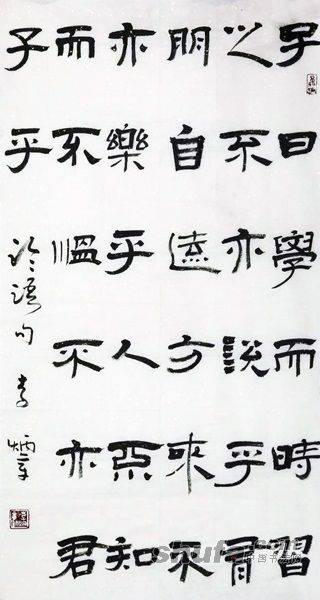 子曰學而時習
之不亦說乎有
朋自遠方來不
亦樂乎人不知
而不慍不亦君
子乎
論語句